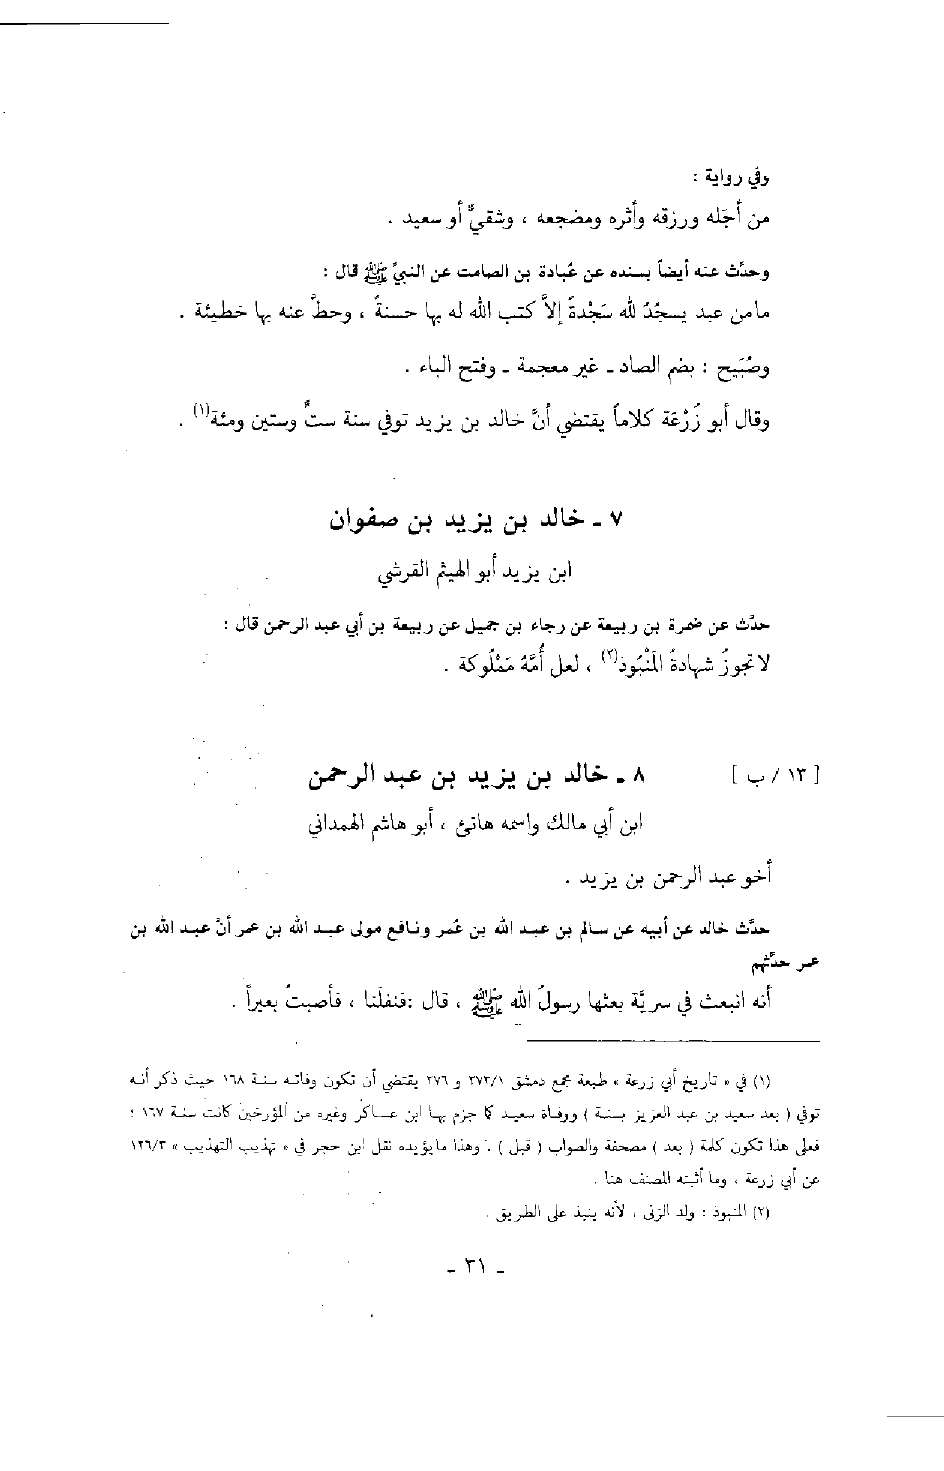 وفي رواية :
من أجَله ورزقه وأثره ومضجعه ، وشقيٌّ أو سعيد .
وحدَّث عنه أيضاً بسنده عن عُبادة بن الصامت عن النبيِّ ﷺ قال :
مامن عبد يسجُدُ لله سَجْدةً إلاَّ كتب الله له بها حسنةً ، وحطَّ عنه بها خطيئة .
وصُبَيح : بضم الصاد ـ غير معجمة ـ وفتح الباء .
وقال أبو زُرْعَة كلاماً يقتضي أنَّ خالد بن يزيد توفي سنة ستٌّ وستين ومئة(١) .
٧ ـ خالد بن يزيد بن صفوان
ابن يزيد أبو الهيثم القرشي
حدَّث عن ضمرة بن ربيعة عن رجاء بن جميل عن ربيعة بن أبي عبد الرحمن قال :
لا تجوزُ شهادةُ المَنْبُوذ(٢) ، لعل أُمَّهُ مَمْلُوكة .
[ ١٣ / ب ] ٨ ـ خالد بن يزيد بن عبد الرحمن
ابن أبي مالك واسمه هانئ ، أبو هاشم الهمداني
أخو عبد الرحمن بن يزيد .
حدَّث خالد عن أبيه عن سالم بن عبد الله بن عُمر ونافع مولى عبد الله بن عمر أنَّ عبد الله بن
عمر حدَّثهم
أنه انبعث في سريَّة بعثها رسولُ الله ﷺ ، قال :فنفلَنا ، فأصبتُ بعيراً .
(١) في « تاريخ أبي زرعة » طبعة مجمع دمشق ٢٧٣/١ و ٢٧٦ يقتضي أن تكون وفاته سنة ١٦٨ حيث ذكر أنه
توفي ( بعد سعيد بن عبد العزيز بسنة ) ووفاة سعيد كما جزم بها ابن عساكر وغيره من المؤرخين كانت سنة ١٦٧ ؛
فعلى هذا تكون كلمة ( بعد ) مصحفة والصواب ( قبل ) . وهذا مايؤيده نقل ابن حجر في « تهذيب التهذيب » ١٢٦/٣
عن أبي زرعة ، وما أثبته المصنف هنا .
(٢) المنبوذ : ولد الزنى ، لأنه ينبذ على الطريق .
ـ ٣١ ـ